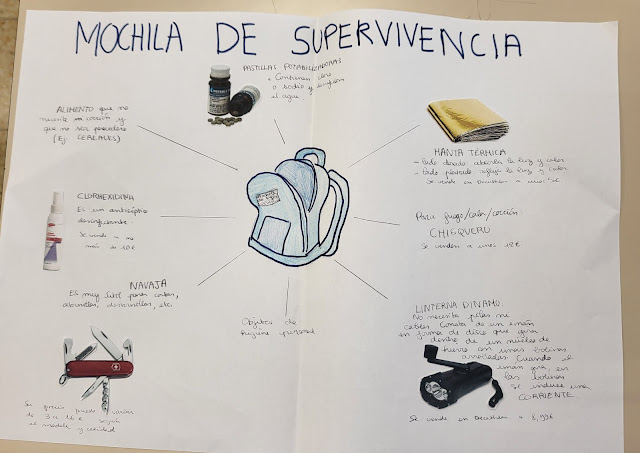 MOCHILA DE SUPERVIVENCIA
PASTILLAS POTABILIZADORAS
+ Contienen cloro
o sodio y
el agua.
ALIMENTO que no
necesite cocción y
que no sea perecedero
(Ej: CEREALES)
MANTA TÉRMICA
- Lado dorado absorbe la luz y calor
- Lado plateado refleja la luz y calor
Se vende en Decathlon
CLORHEXIDINA
Es un antiséptico
desinfectante.
Se vende a no
más de 10€
Para fuego/calor/cocción:
CHISQUERO
Se venden a unos 12€
NAVAJA
Es muy útil para cortar,
abrir latas, destornillar, etc.
Su precio puede variar
de 3 a según
el modelo y calidad
Objetos de
higiene personal
LINTERNA DINAMO.
No necesita pilas ni
cables. Consta de un imán
en forma de disco que gira
dentro de un núcleo de
hierro con unas bobinas
arrolladas. Cuando el
imán gira, en
las bobinas
se induce una
CORRIENTE.
Se vende en Decathlon a 8,99€